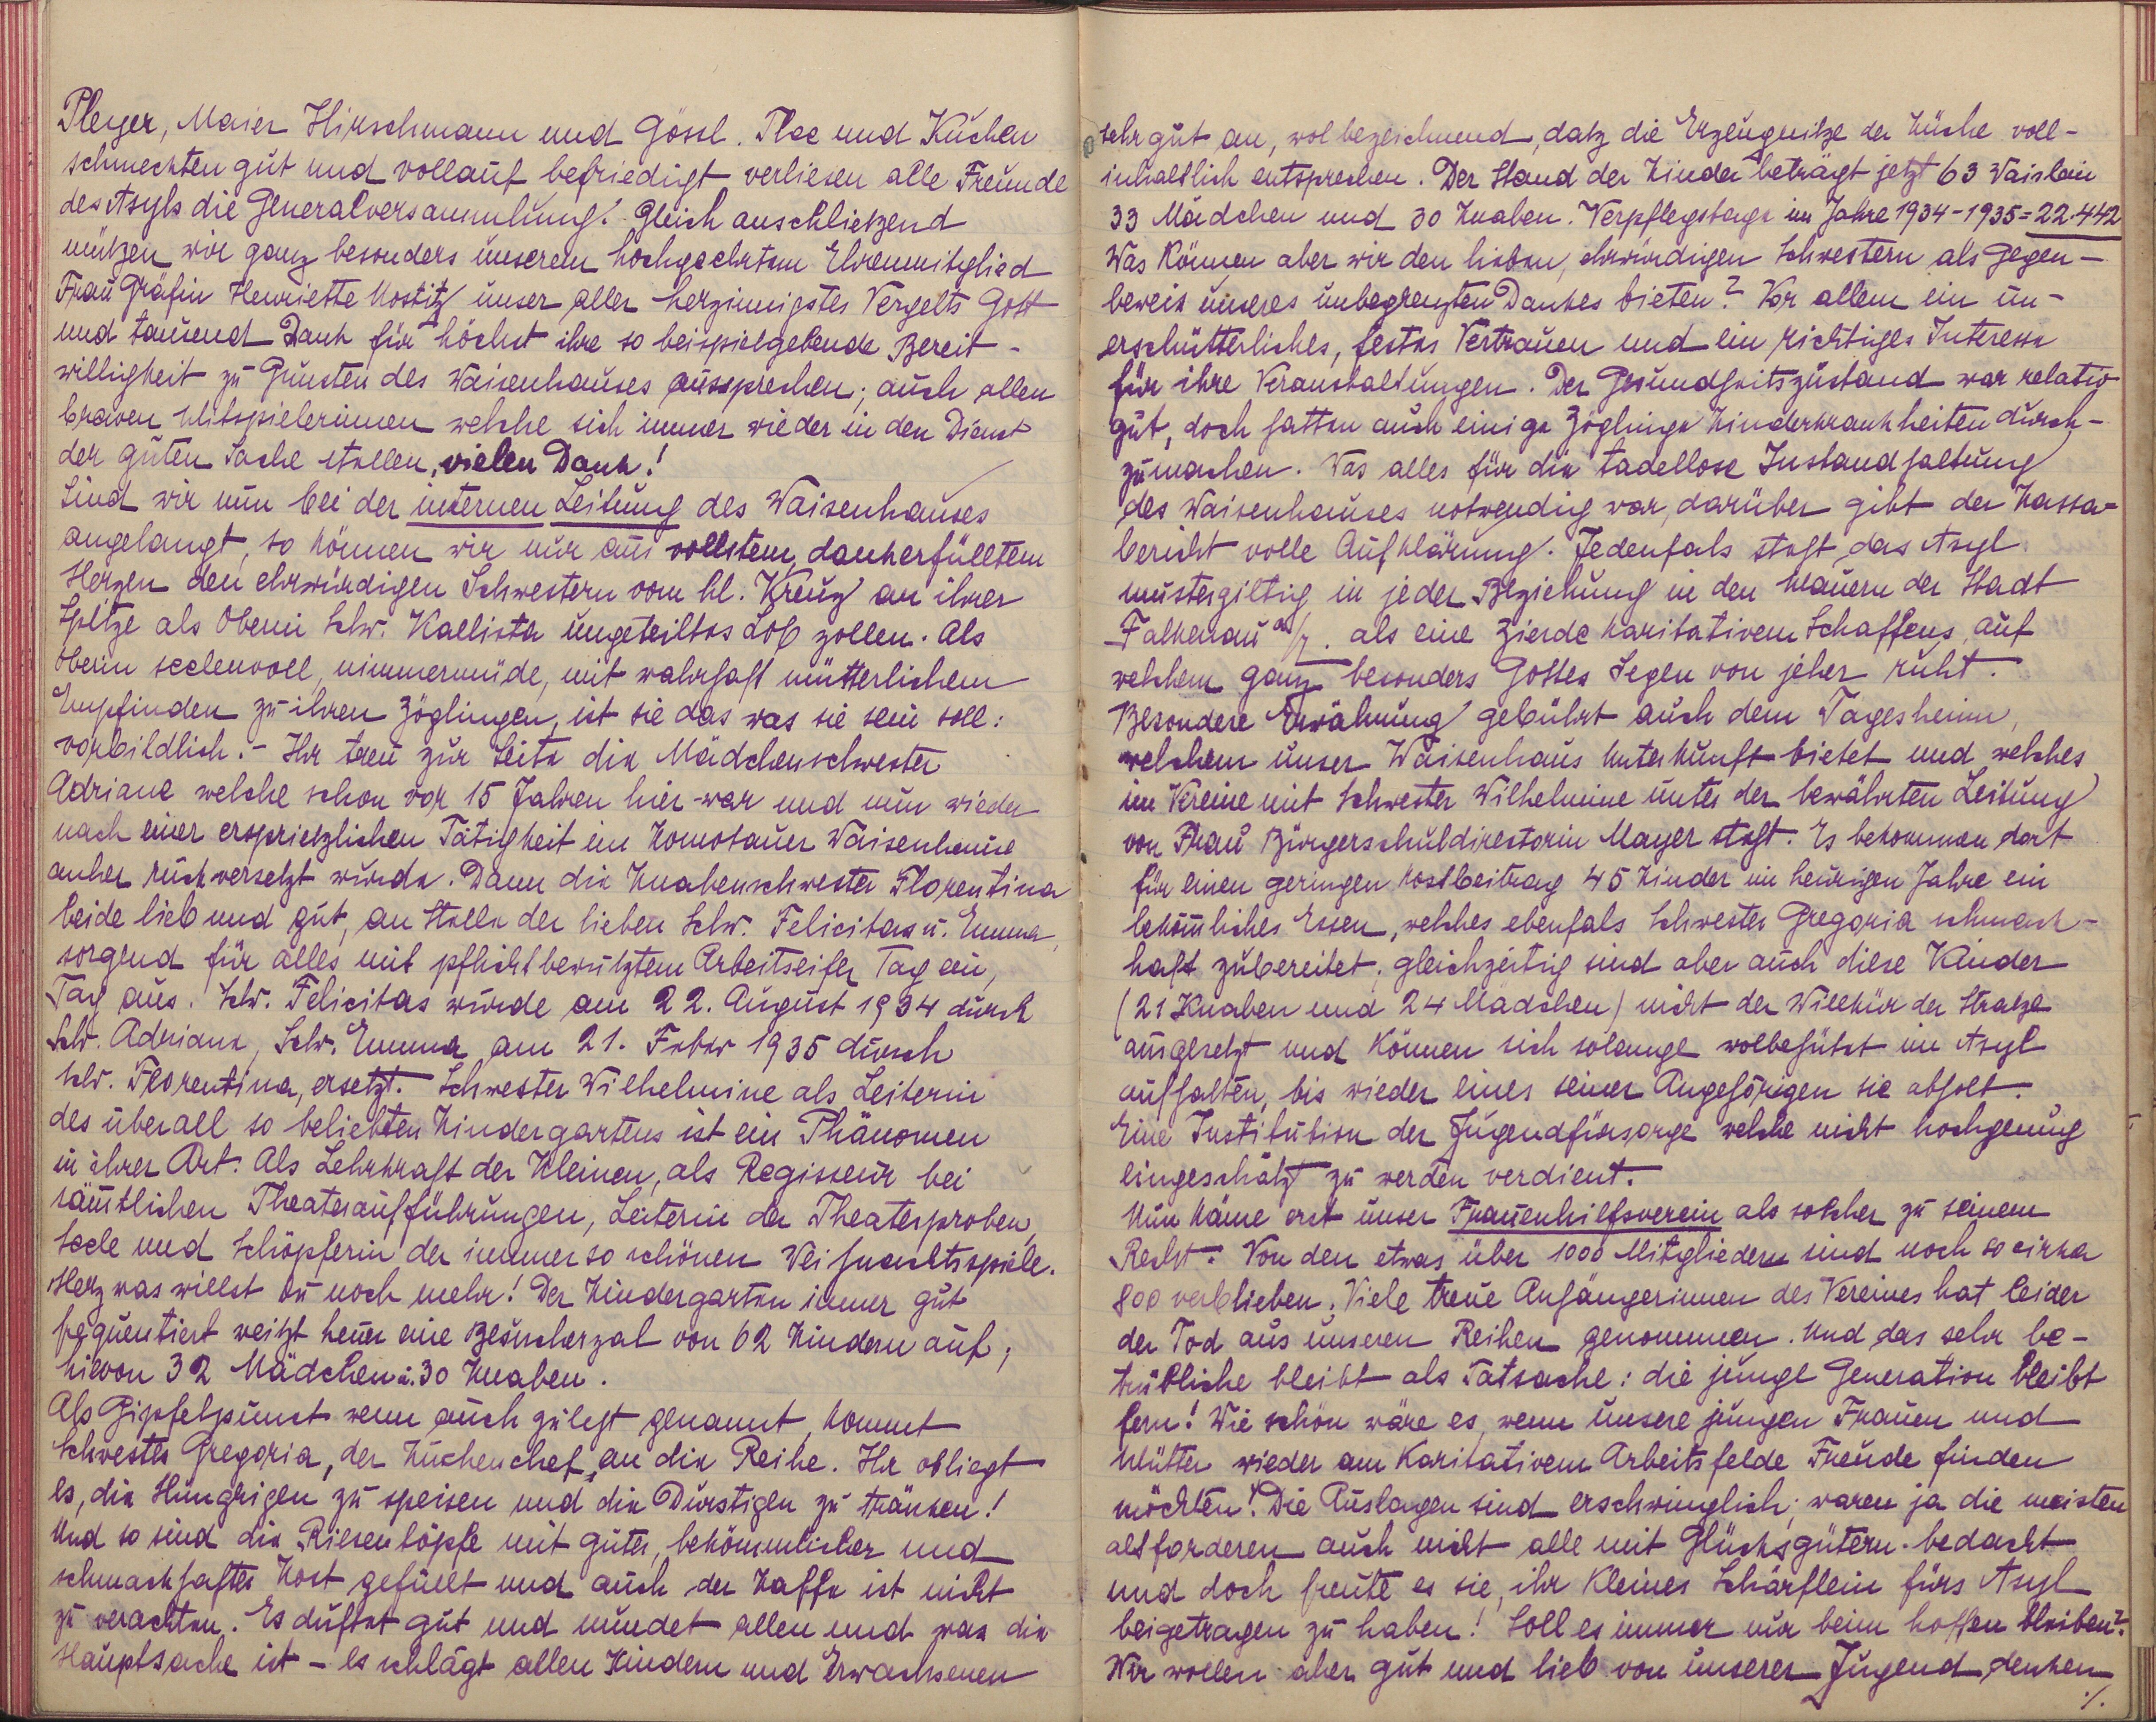 Pleyer, Maier Hirschmann und Gössl. Thee und Kuchen
schmeckten gut und vollauf befriedigt verliesen alle Freunde
des Asyls die Generalversammlung. Gleich anschlietzend
mützen wir ganz besonders unserem hochgeehrtem Ehrenmitglied
Frau Gräfin Henriette Nostitz unser aller herzinnigstes Vergelts Gott
und tausend Dank für höchst ihre so beispielgebende Bereit-
willigkeit zu Gunsten des Waisenhauses aussprechen; auch allen
braven Mitspielerinnen welche sich immer wieder in den Dienst
der guten Sache stellen, vielen Dank!
Sind wir nun bei der internen Leitung des Waisenhauses
angelangt, so können wir nur aus vollstem, dankerfülltem
Herzen den ehrwürdigen Schwestern vom hl. Kreuz an ihrer
Spitze als Oberin Schw. Kallista ungeteiltes Lob zollen. Als
Oberin seelenvoll, nimmermüde, mit wahrhaft mütterlichem
Empfinden zu ihren Zöglingen, ist sie das was sie sein soll:
vorbildlich.- Ihr treu zur Seite die Mädchenschwester
Adriane welche schon vor 15 Jahren hier war und nun wieder
nach einer ersprietzlichen Tätigkeit im Komotauer Waisenhause
anher rückversetzt wurde. Dann die Knabenschwester Florentina
beide lieb und gut, an Stelle der lieben Schw. Felicitas u. Emma,
sorgend für alles mit pflichtbewutztem Arbeitseifer Tag ein,
Tag aus. Schw. Felicitas wurde am 22. August 1934 durch
Schw. Adriane, Schw. Emma am 21. Feber 1935 durch
Schw. Florentina, ersetzt. Schwester Wilhelmine als Leiterin
des überall so beliebten Kindergartens ist ein Phänomen
in ihrer Art. Als Lehrkraft der Kleinen, als Regisseur bei
sämtlichen Theateraufführungen, Leiterin der Theaterproben,
Seele und Schöpferin der immer so schönen Weihnachtsspiele.
Herz was willst du noch mehr! Der Kindergarten immer gut
frequentiert weitzt heuer eine Besucherzal von 62 Kindern auf;
hievon 32 Mädchen u. 30 Knaben.
Als Gipfelpunct wenn auch zuletzt genannt, kommt
Schwester Gregoria, der Küchenchef, an die Reihe. Ihr obliegt
es, die Hungrigen zu speisen und die Durstigen zu tränken!
Und so sind die Riesentöpfe mit guter, bekömmlicher und
schmackhafter Kost gefüllt und auch der Kaffe ist nicht
zu verachten. Es duftet gut und mundet allen und was die
Hauptsache ist - es schlägt allen Kindern und Erwachsenen
sehr gut an, wol bezeichnend, datz die Erzeugnitze der Küche voll-
inhaltlich entsprechen. Der Stand der Kinder beträgt jetzt 63 Waislein
33 Mädchen und 30 Knaben. Verpflegstage im Jahre 1934-1935=22.442
Was können aber wir den lieben, ehrwürdigen Schwestern als Gegen-
beweis unseres unbegrenzten Dankes bieten? Vor allem ein un-
erschütterliches, festes Vertrauen und ein richtiges Interesse
für ihre Veranstaltungen. Der Gesundheitszustand war relativ
gut, doch hatten auch einige Zöglinge Kinderkrankheiten durch-
zumachen. Was alles für die tadellose Instandhaltung
des Waisenhauses notwendig war, darüber gibt der Kassa-
bericht volle Aufklärung. Jedenfals steht das Asyl
mustergiltig in jeder Beziehung in den Mauern der Stadt
Falkenau a/E. als eine Zierde karitativem Schaffens, auf
welchem ganz besonders Gottes Segen von jeher ruht.
Besondere Erwähnung gebührt auch dem Tagesheim,
welchem unser Waisenhaus Unterkunft bietet und welches
im Vereine mit Schwester Wilhelmine unter der bewährten Leitung
von Frau Bürgerschuldirektorin Mayer steht. Es bekommen dort
für einen geringen Kostbeitrag 45 Kinder im heurigen Jahre ein
bekömliches Essen, welches ebenfals Schwester Gregoria schmack-
haft zubereitet; gleichzeitig sind aber auch diese Kinder
(21 Knaben und 24 Mädchen) nicht der Willkür der Stratze
ausgesetzt und können sich solange wolbehütet im Asyl
aufhalten, bis wieder eines seiner Angehörigen sie abholt.
Eine Institution der Jugendfürsorge welche nicht hochgenug
eingeschätzt zu werden verdient.
Nun käme erst unser Frauenhilfsverein als solcher zu seinem
Recht. Von den etwas über 1000 Mitgliedern sind noch so cirka
800 verblieben. Viele treue Anhängerinnen des Vereines hat leider
der Tod aus unseren Reihen genommen. Und das sehr be-
trübliche bleibt als Tatsache: die junge Generation bleibt
fern! Wie schön wäre es, wenn unsere jungen Frauen und
Mütter wieder am karitativem Arbeitsfelde Freude finden
möchten! Die Auslagen sind erschwinglich; waren ja die meisten
altforderen auch nicht alle mit Glücksgütern bedacht
und doch freute es sie, ihr kleines Schärflein fürs Asyl
beigetragen zu haben! Soll es immer nur beim hoffen bleiben?
Wir wollen aber gut und lieb von unserer Jugend denken
./.